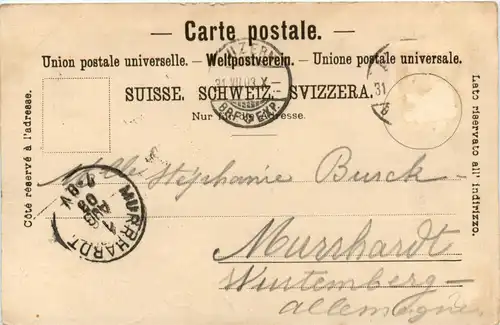 — Carte postale. —
Union postale universelle. — Weltpostverein. — Unione postale universale.
SUISSE. SCHWEIZ. SVIZZERA.
Nur für die Adresse.
Côté réservé à l'adresse.
Lato riservato all' indirizzo.
LUZERN
BRF. EXP.
31
MURRHARDT
Mlle Stephanie Burck
Murrhardt
Wurtemberg
Allemagne